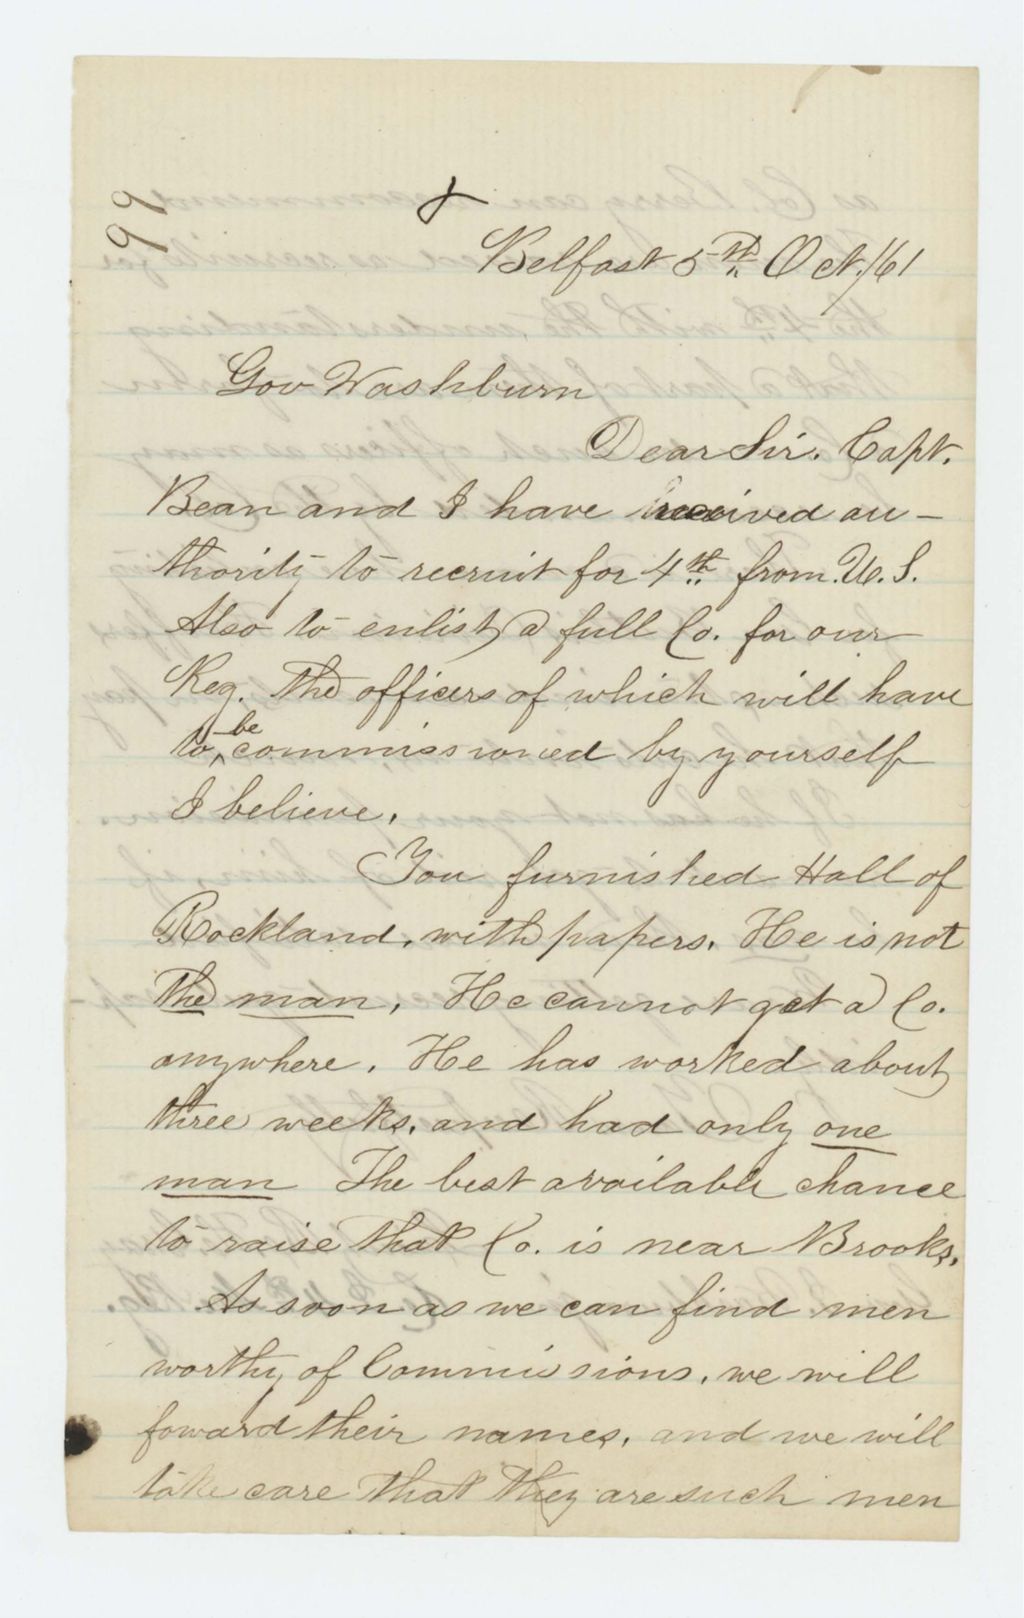 99
Belfast 5th Oct. /61
Gov Washburn
Dear Sir. Capt.
Bean and I have received au-
thority to recruit for 4th from U.S.
Also to enlist a full Co. for our
Reg. The officers of which will have
to be commissioned by yourself
I believe.
You furnished Hall of
Rockland, with papers. He is not
the man. He cannot get a Co.
anywhere. He has worked about
three weeks, and had only one
man The best available chance
to raise that Co. is near Brooks.
As soon as we can find men
worthy of Commissions, we will
foward their names, and we will
take care that they are such men